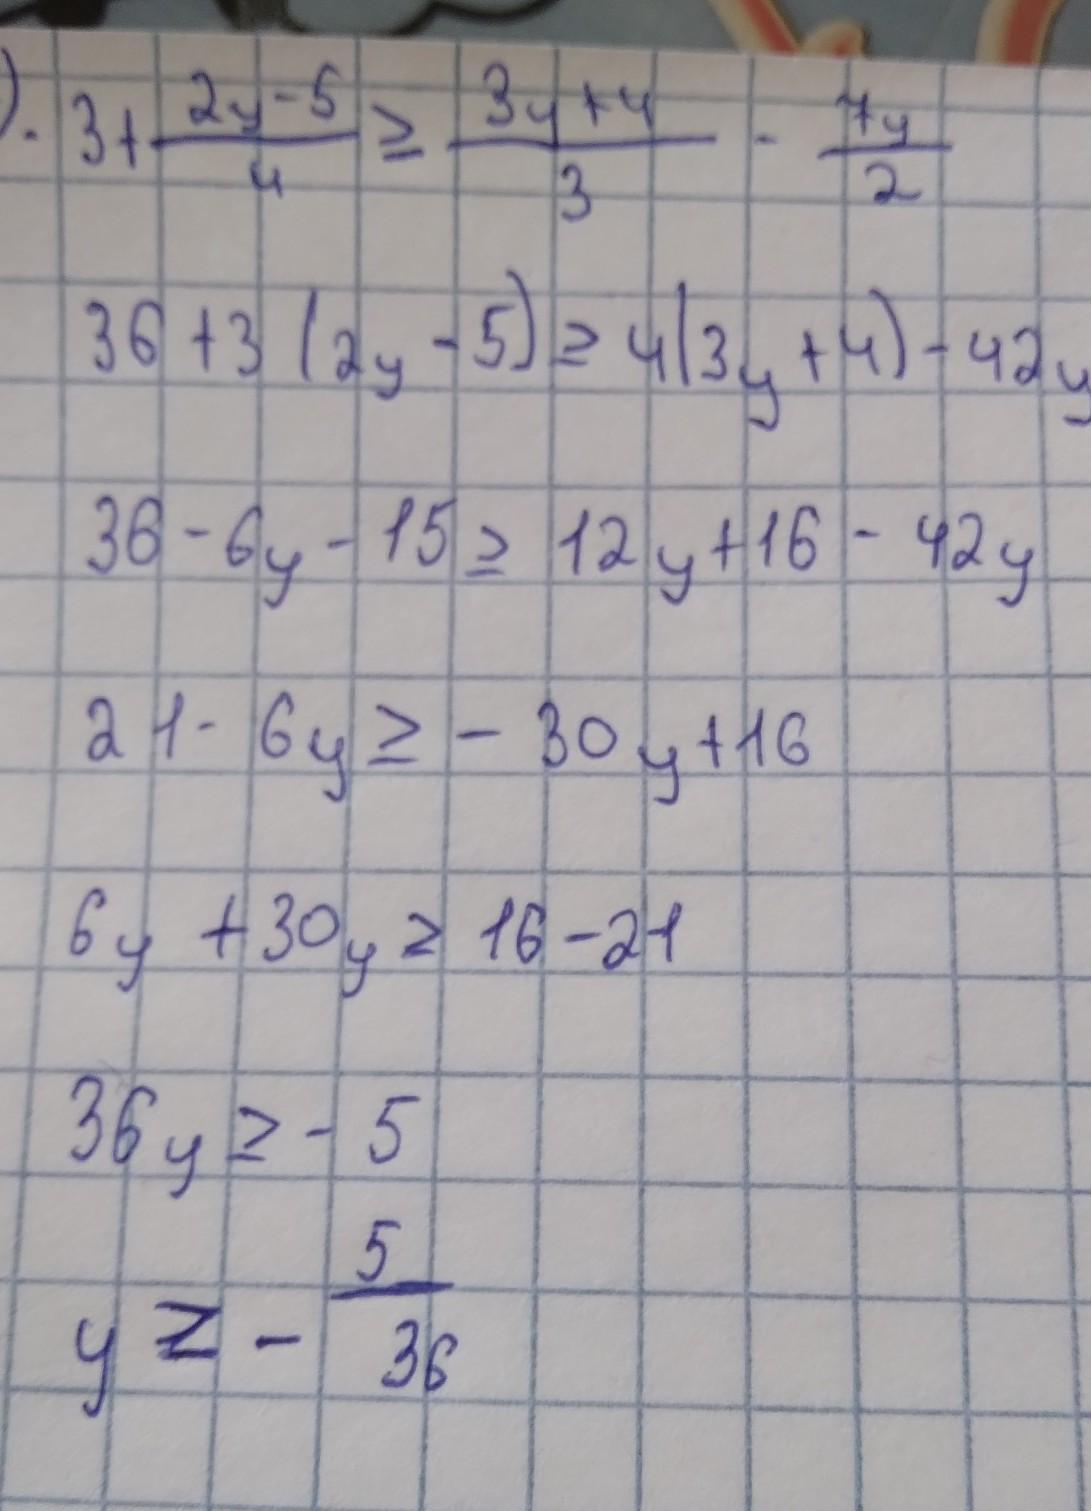 ). 3+ (2y-5)/4 ≥ (3y+4)/3 - 7y/2
36+3(2y-5)≥4(3y+4)-42y
36-6y-15≥12y+16-42y
21-6y≥-30y+16
6y+30y≥16-21
36y≥-5
y≥-5/36